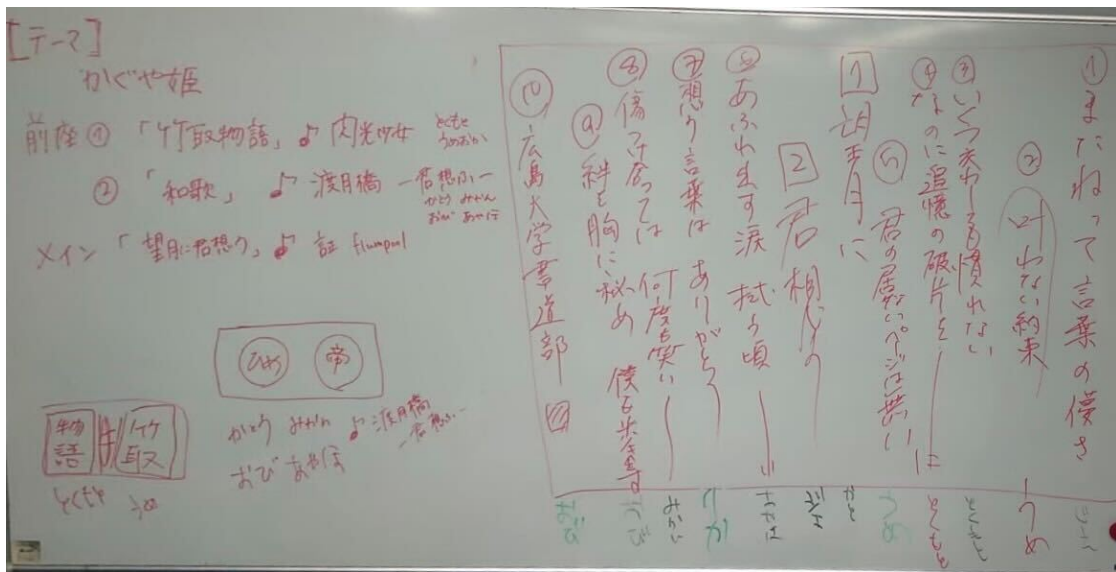 [テーマ]
かぐや姫
前座 ① 「竹取物語」 ♪ 閃光少女
② 「和歌」 ♪ 渡月橋 ー君想ふー
かとう みかん
おび あやほ
メイン 「望月に君想う」 ♪ 証 flumpool
ひめ 帝
物語 竹取
とくもと うめ
かとう みかん ♪ 渡月橋
ー君想ふー
おび あやほ
① まだねって言葉の儚さ
② 叶わない約束
③ いくつ交わしても慣れない
④ なのに追憶の破片を
⑤ 君の居ないページは無い
1 望月に
2 君想う
⑥ あふれ出す涙 拭う頃
⑦ 想う言葉は ありがとう
⑧ 傷つけ合っては 何度も笑い
⑨ 絆を胸に秘め 僕も歩き出す
⑩ 広島大学書道部
うめ
とくもと
とくもと
うめ
かと
みかん
おび
おび